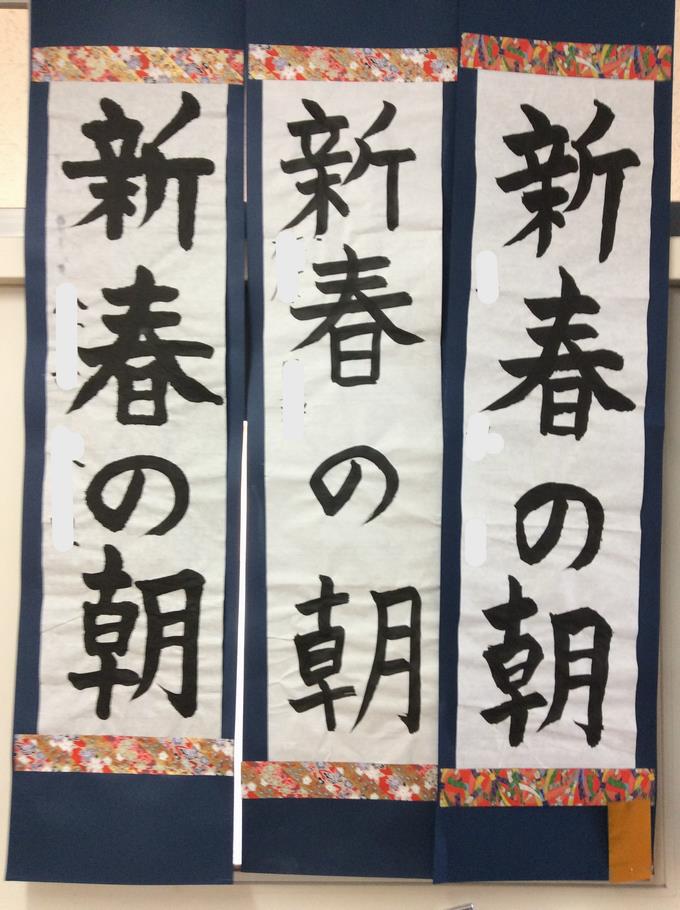 新春の朝
新春の朝
新春の朝